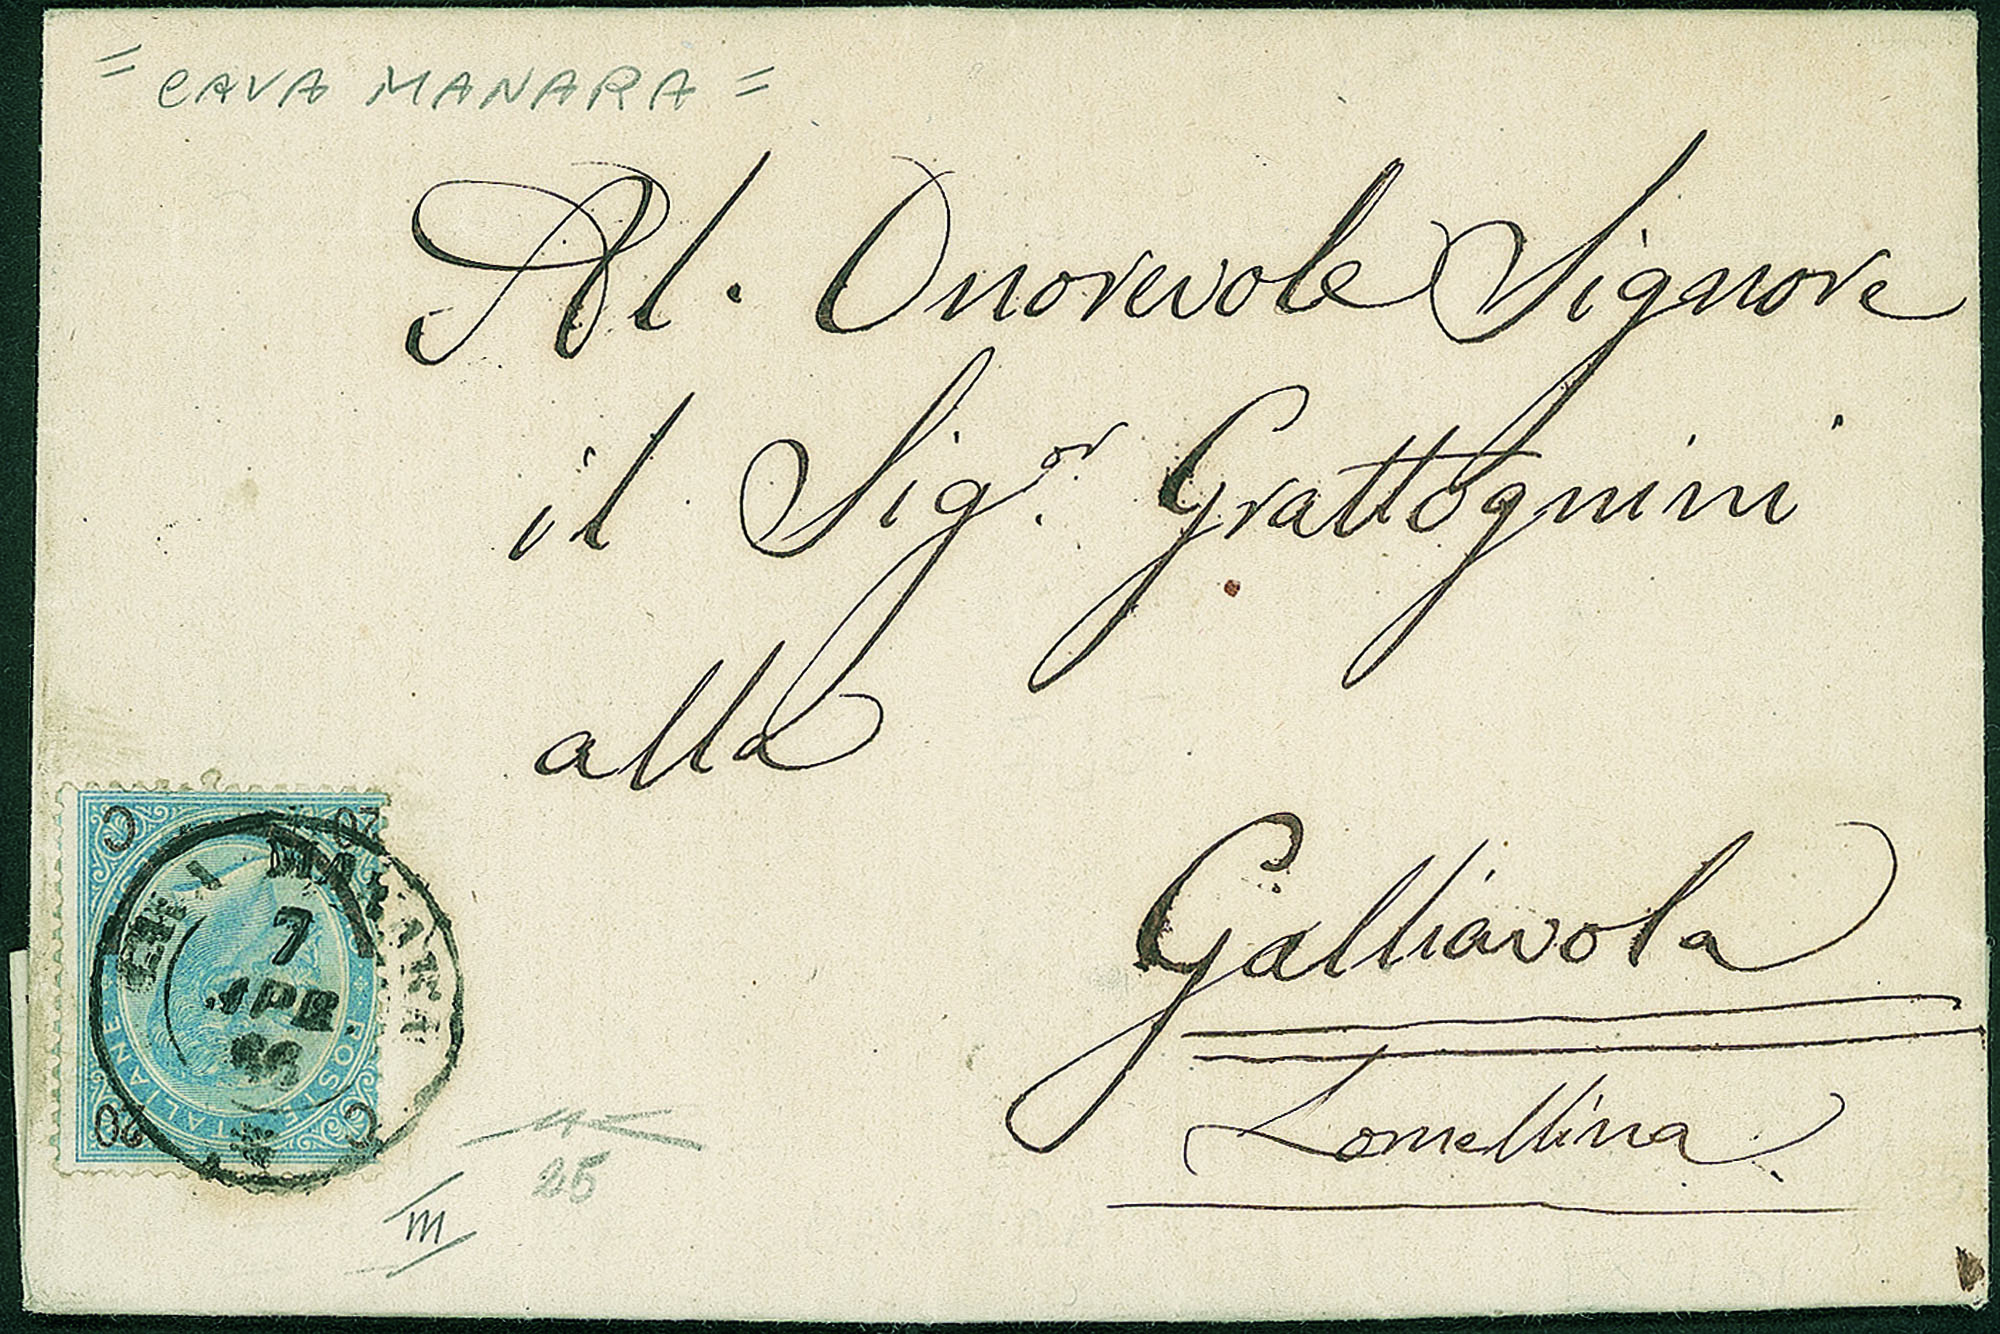 = CAVA MANARA =
Al. Onorevole Signore
il Sig.or Grattognini
alla
Galliavola
Lomellina
C 20
MANARA
7
APR.
66
ITALIANE
20 C
25
III